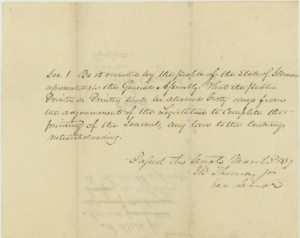 Sec. 1 Be it enacted by the People of the State of Illinois
represented in the General Assembly, That the Public
Printer or Printers shall be allowed Forty days from
the adjournment of the Legislature to complete the
printing of the Journals, any law to the contrary
notwithstanding.
Passed the Senate March 1837
Thomas